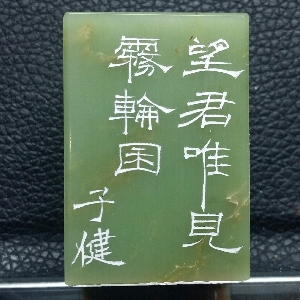 望君唯見
霧輪国
子健